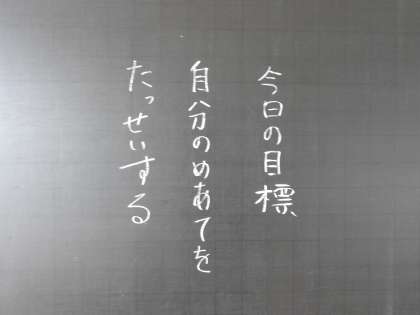 今日の目標
自分のめあてを
たっせいする